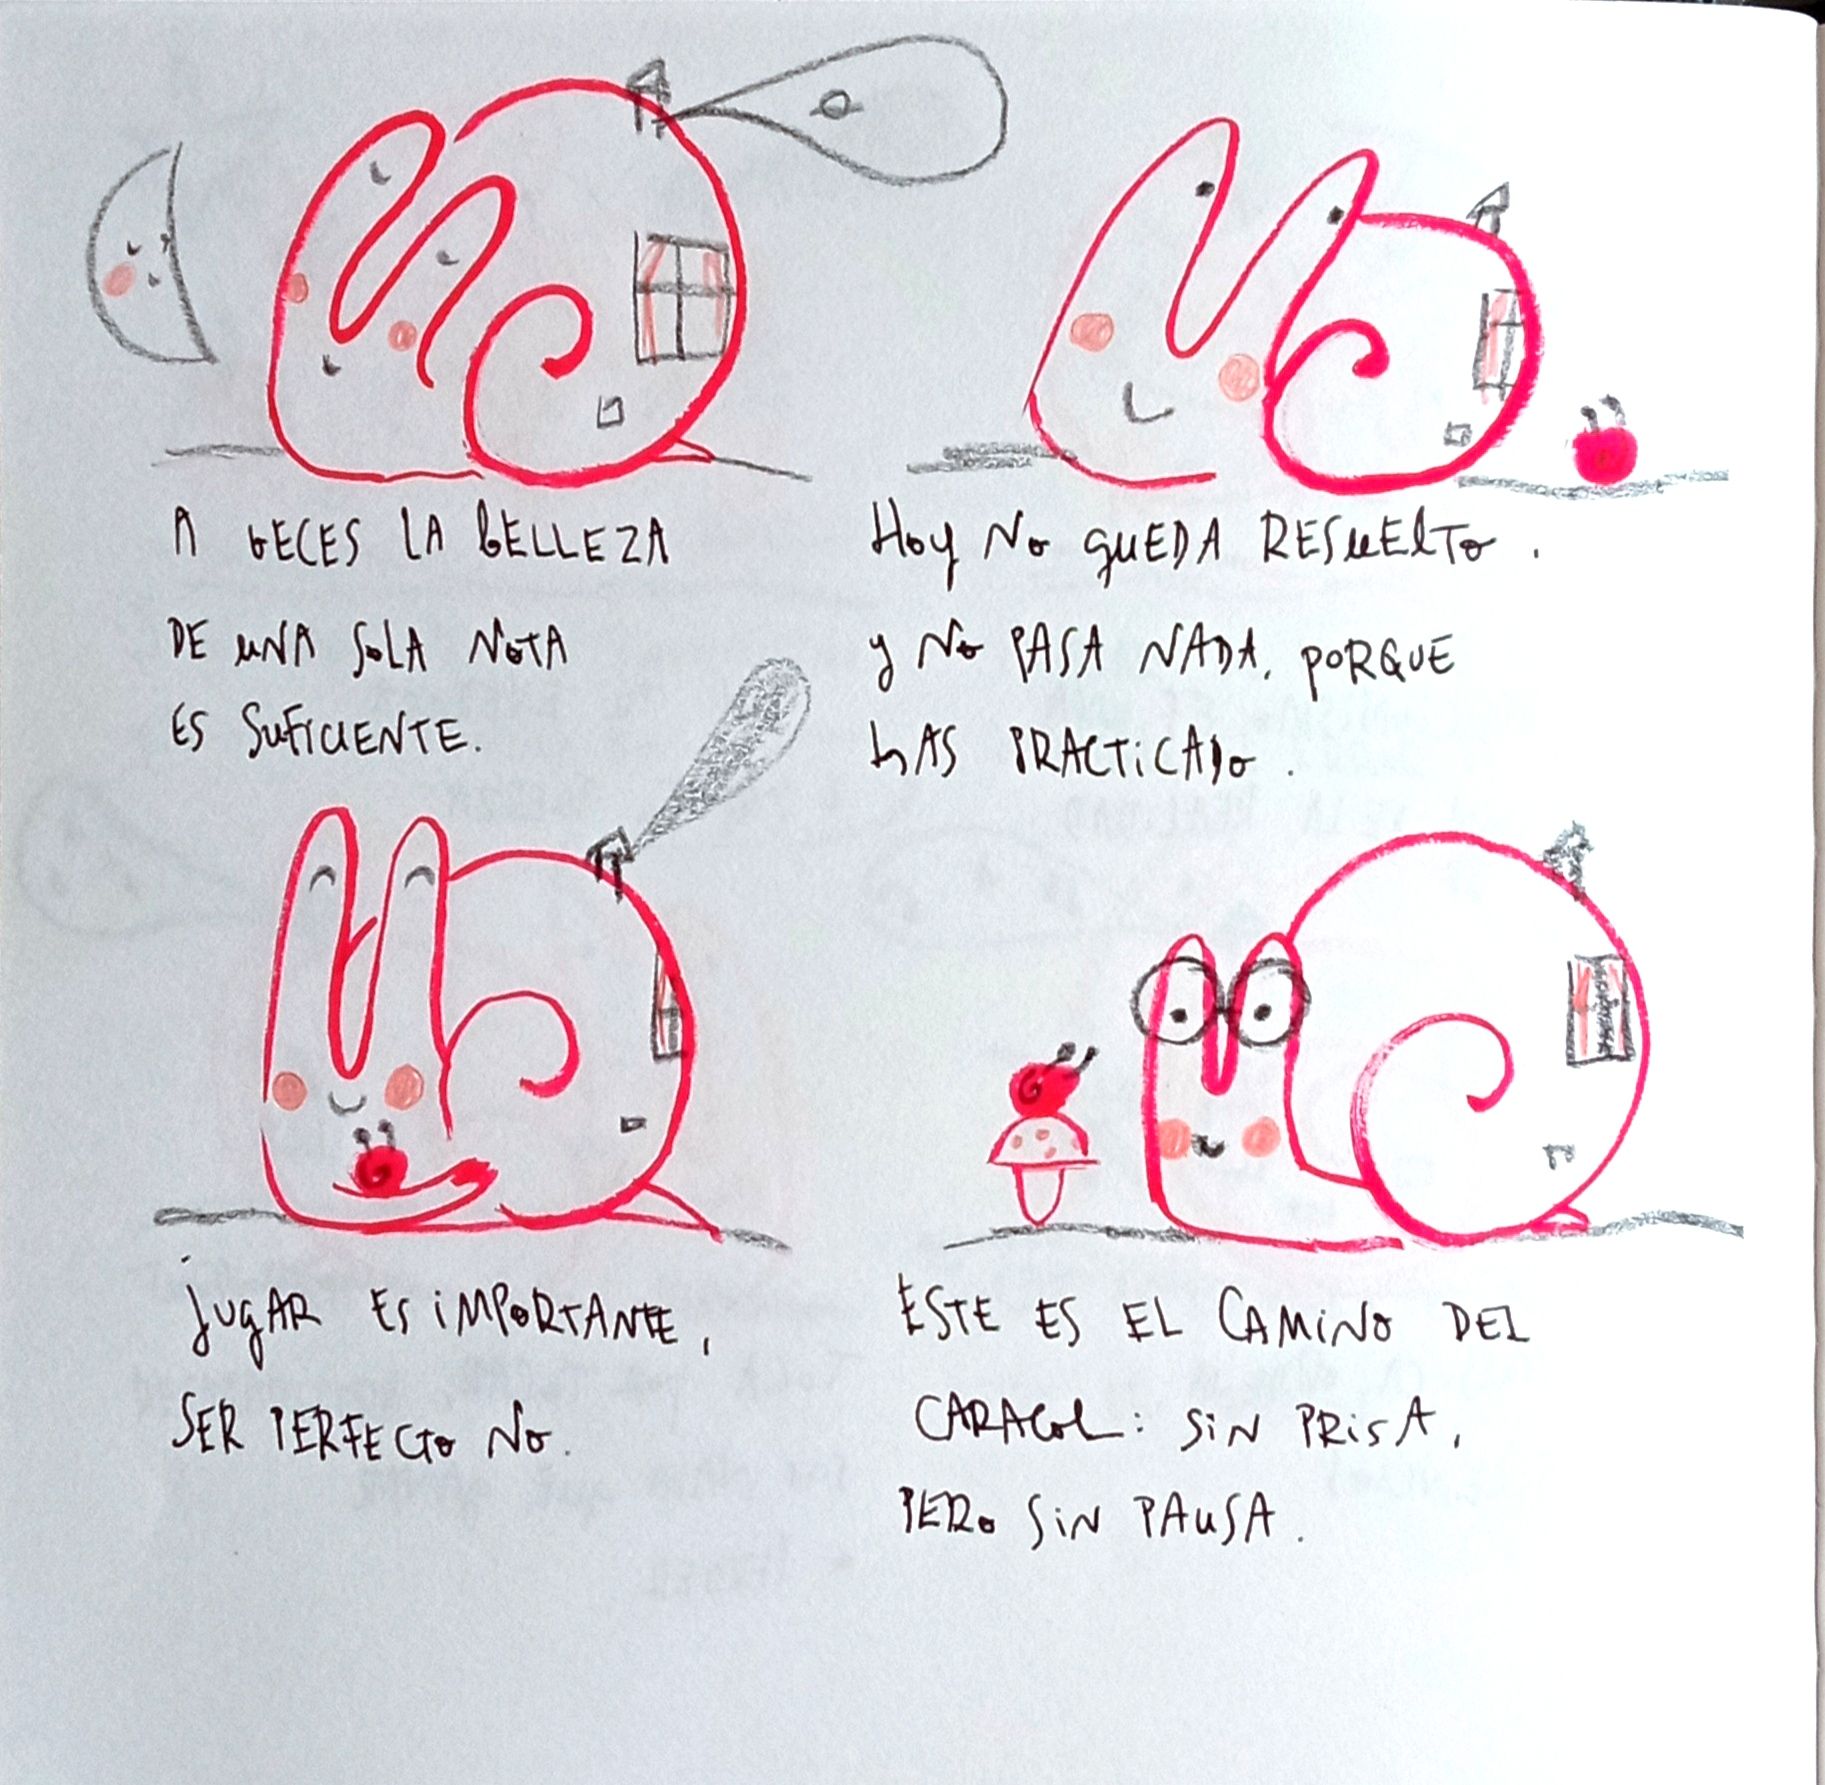 A VECES LA BELLEZA
DE UNA SOLA NOTA
ES SUFICIENTE.
Hoy No qUEDA RESUElTo.
y No PASA NADA, PORQUE
hAS PRACTiCADo.
jUgAR ES iMPORTANTE,
SER PERFECTo No.
ESTE ES EL CAMiNO DEL
CARACoL: SiN PRiSA,
PERo SiN PAUSA.